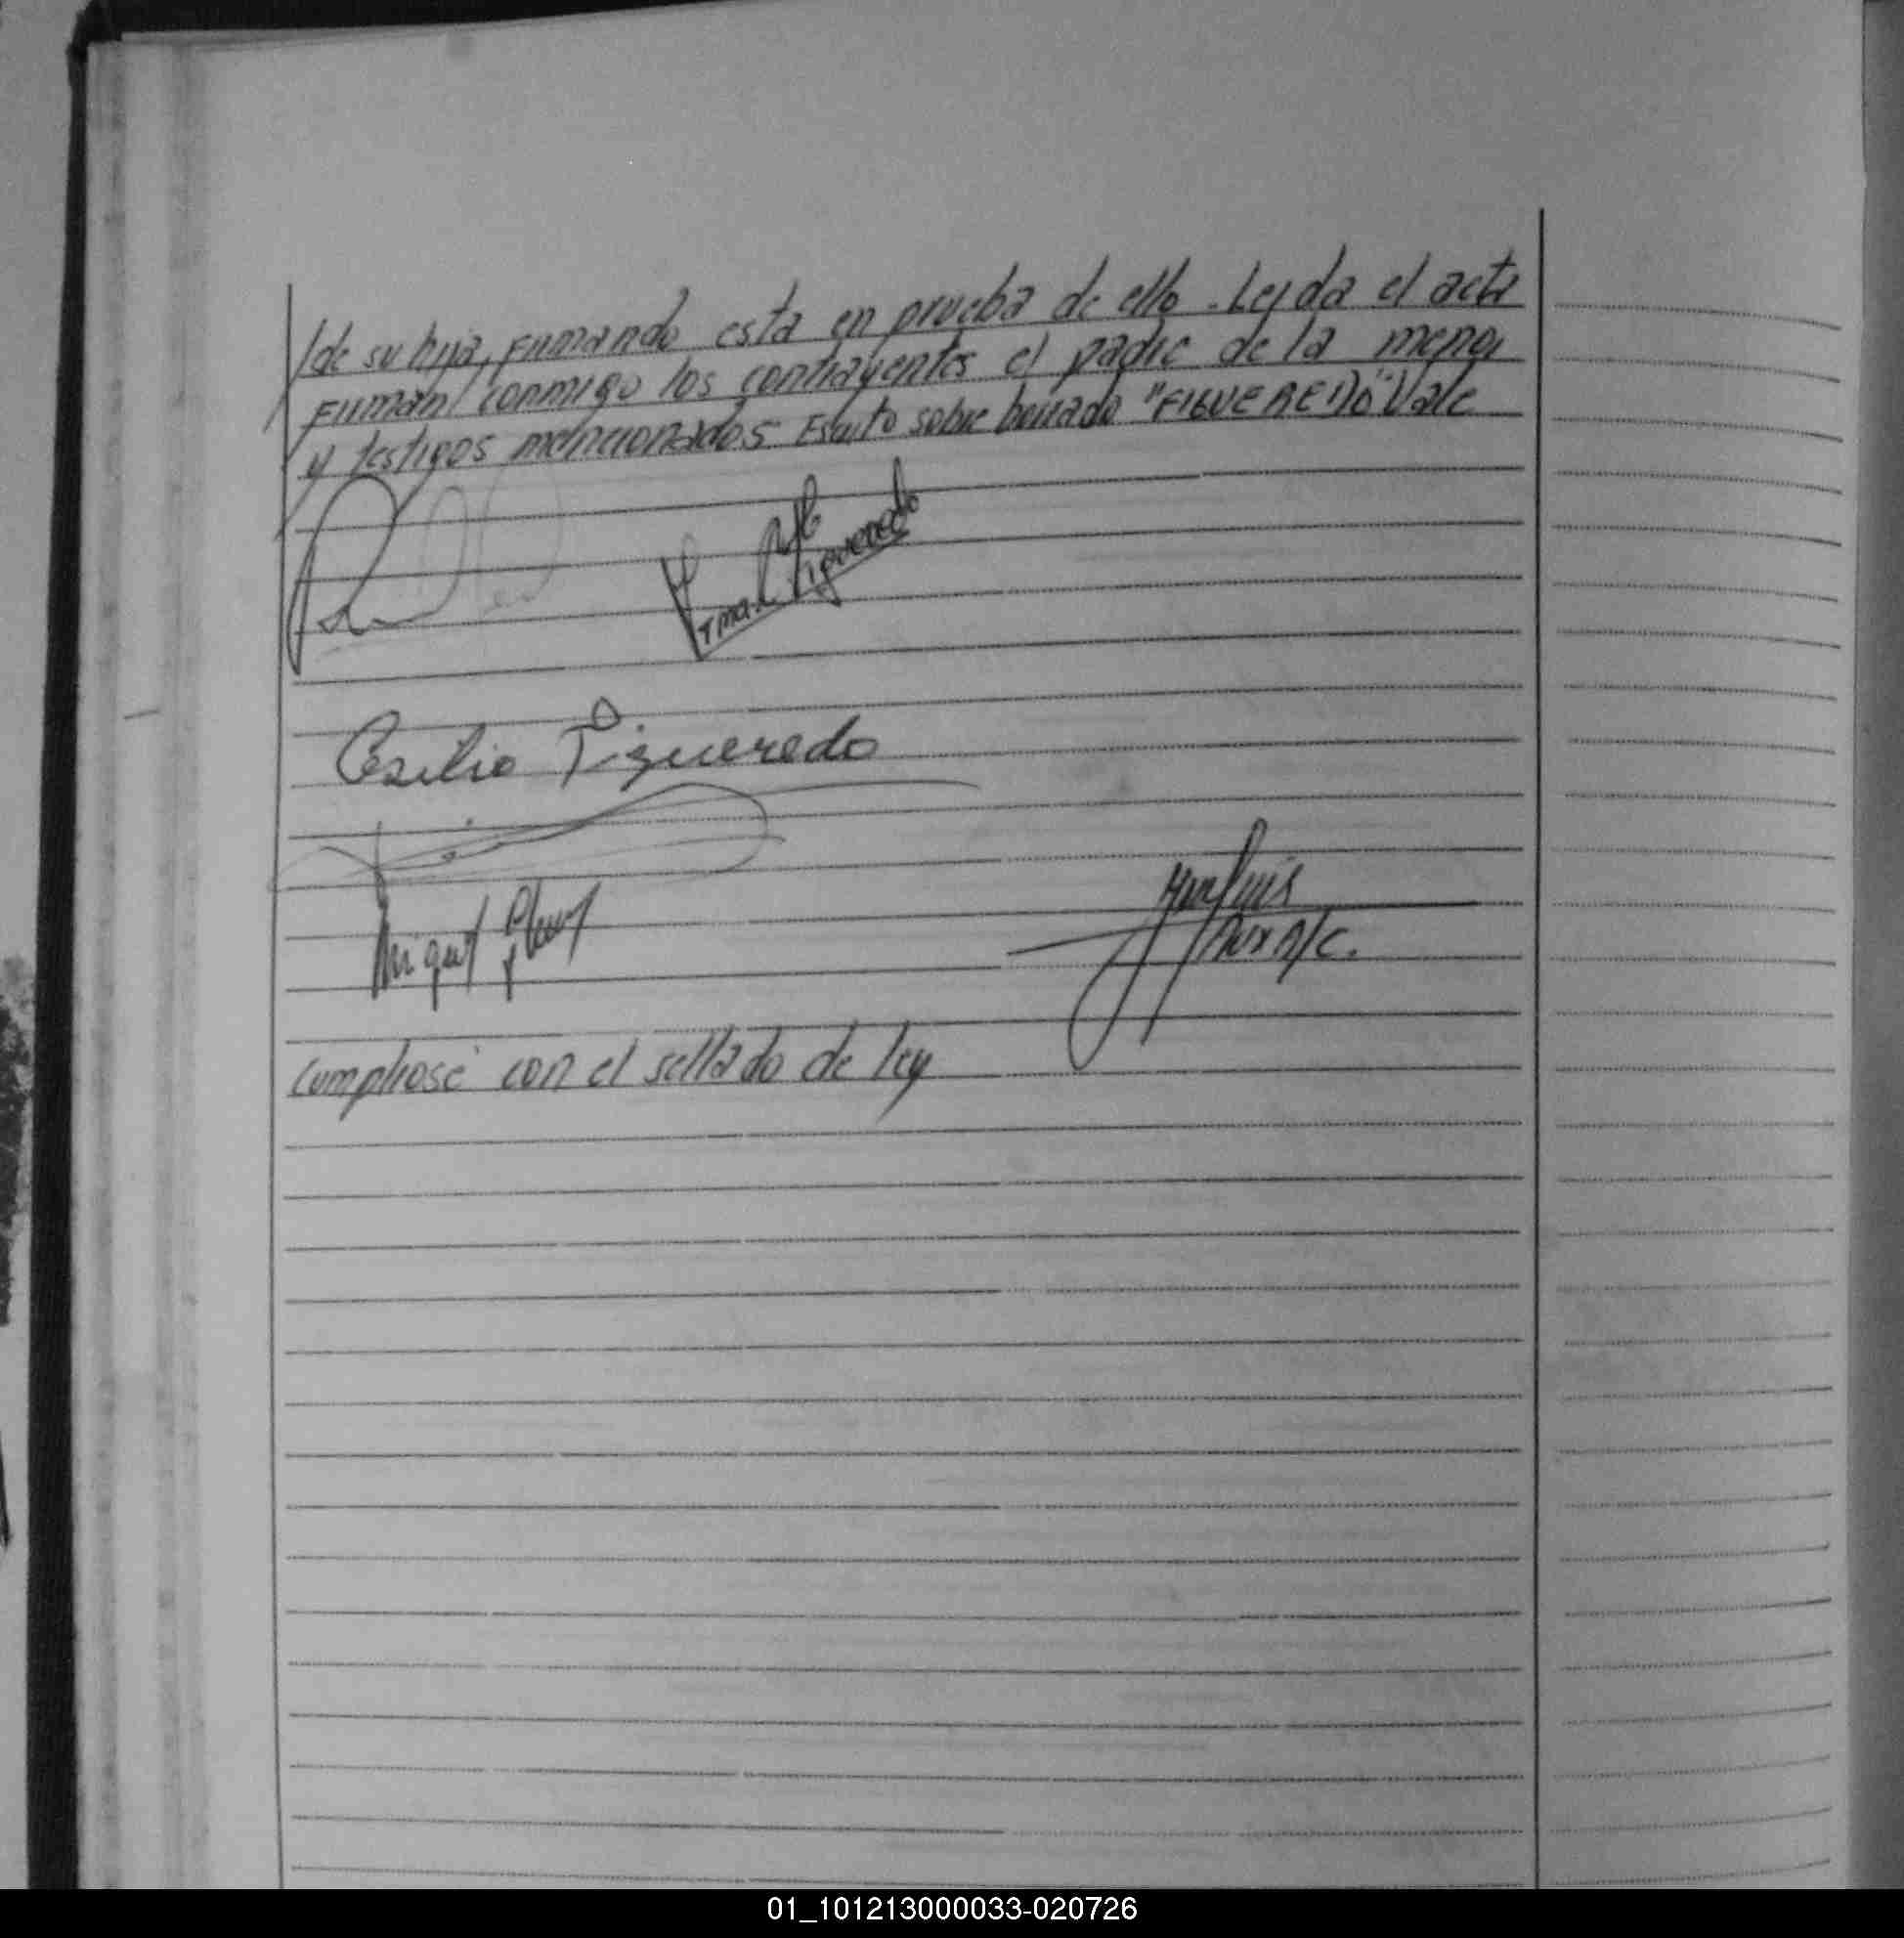 /de su hija, firmando esta en prueba de ello. Leyda el acta
firman conmigo los contrayentes el padre de la menor
y testigos mencionados. Escrito sobre borrado "FIGUEREDO" Vale
Irma C. Figueredo
Cesilio Figueredo
Miguel
Aux A/C.
Cumpliose con el sellado de ley
01_101213000033-020726